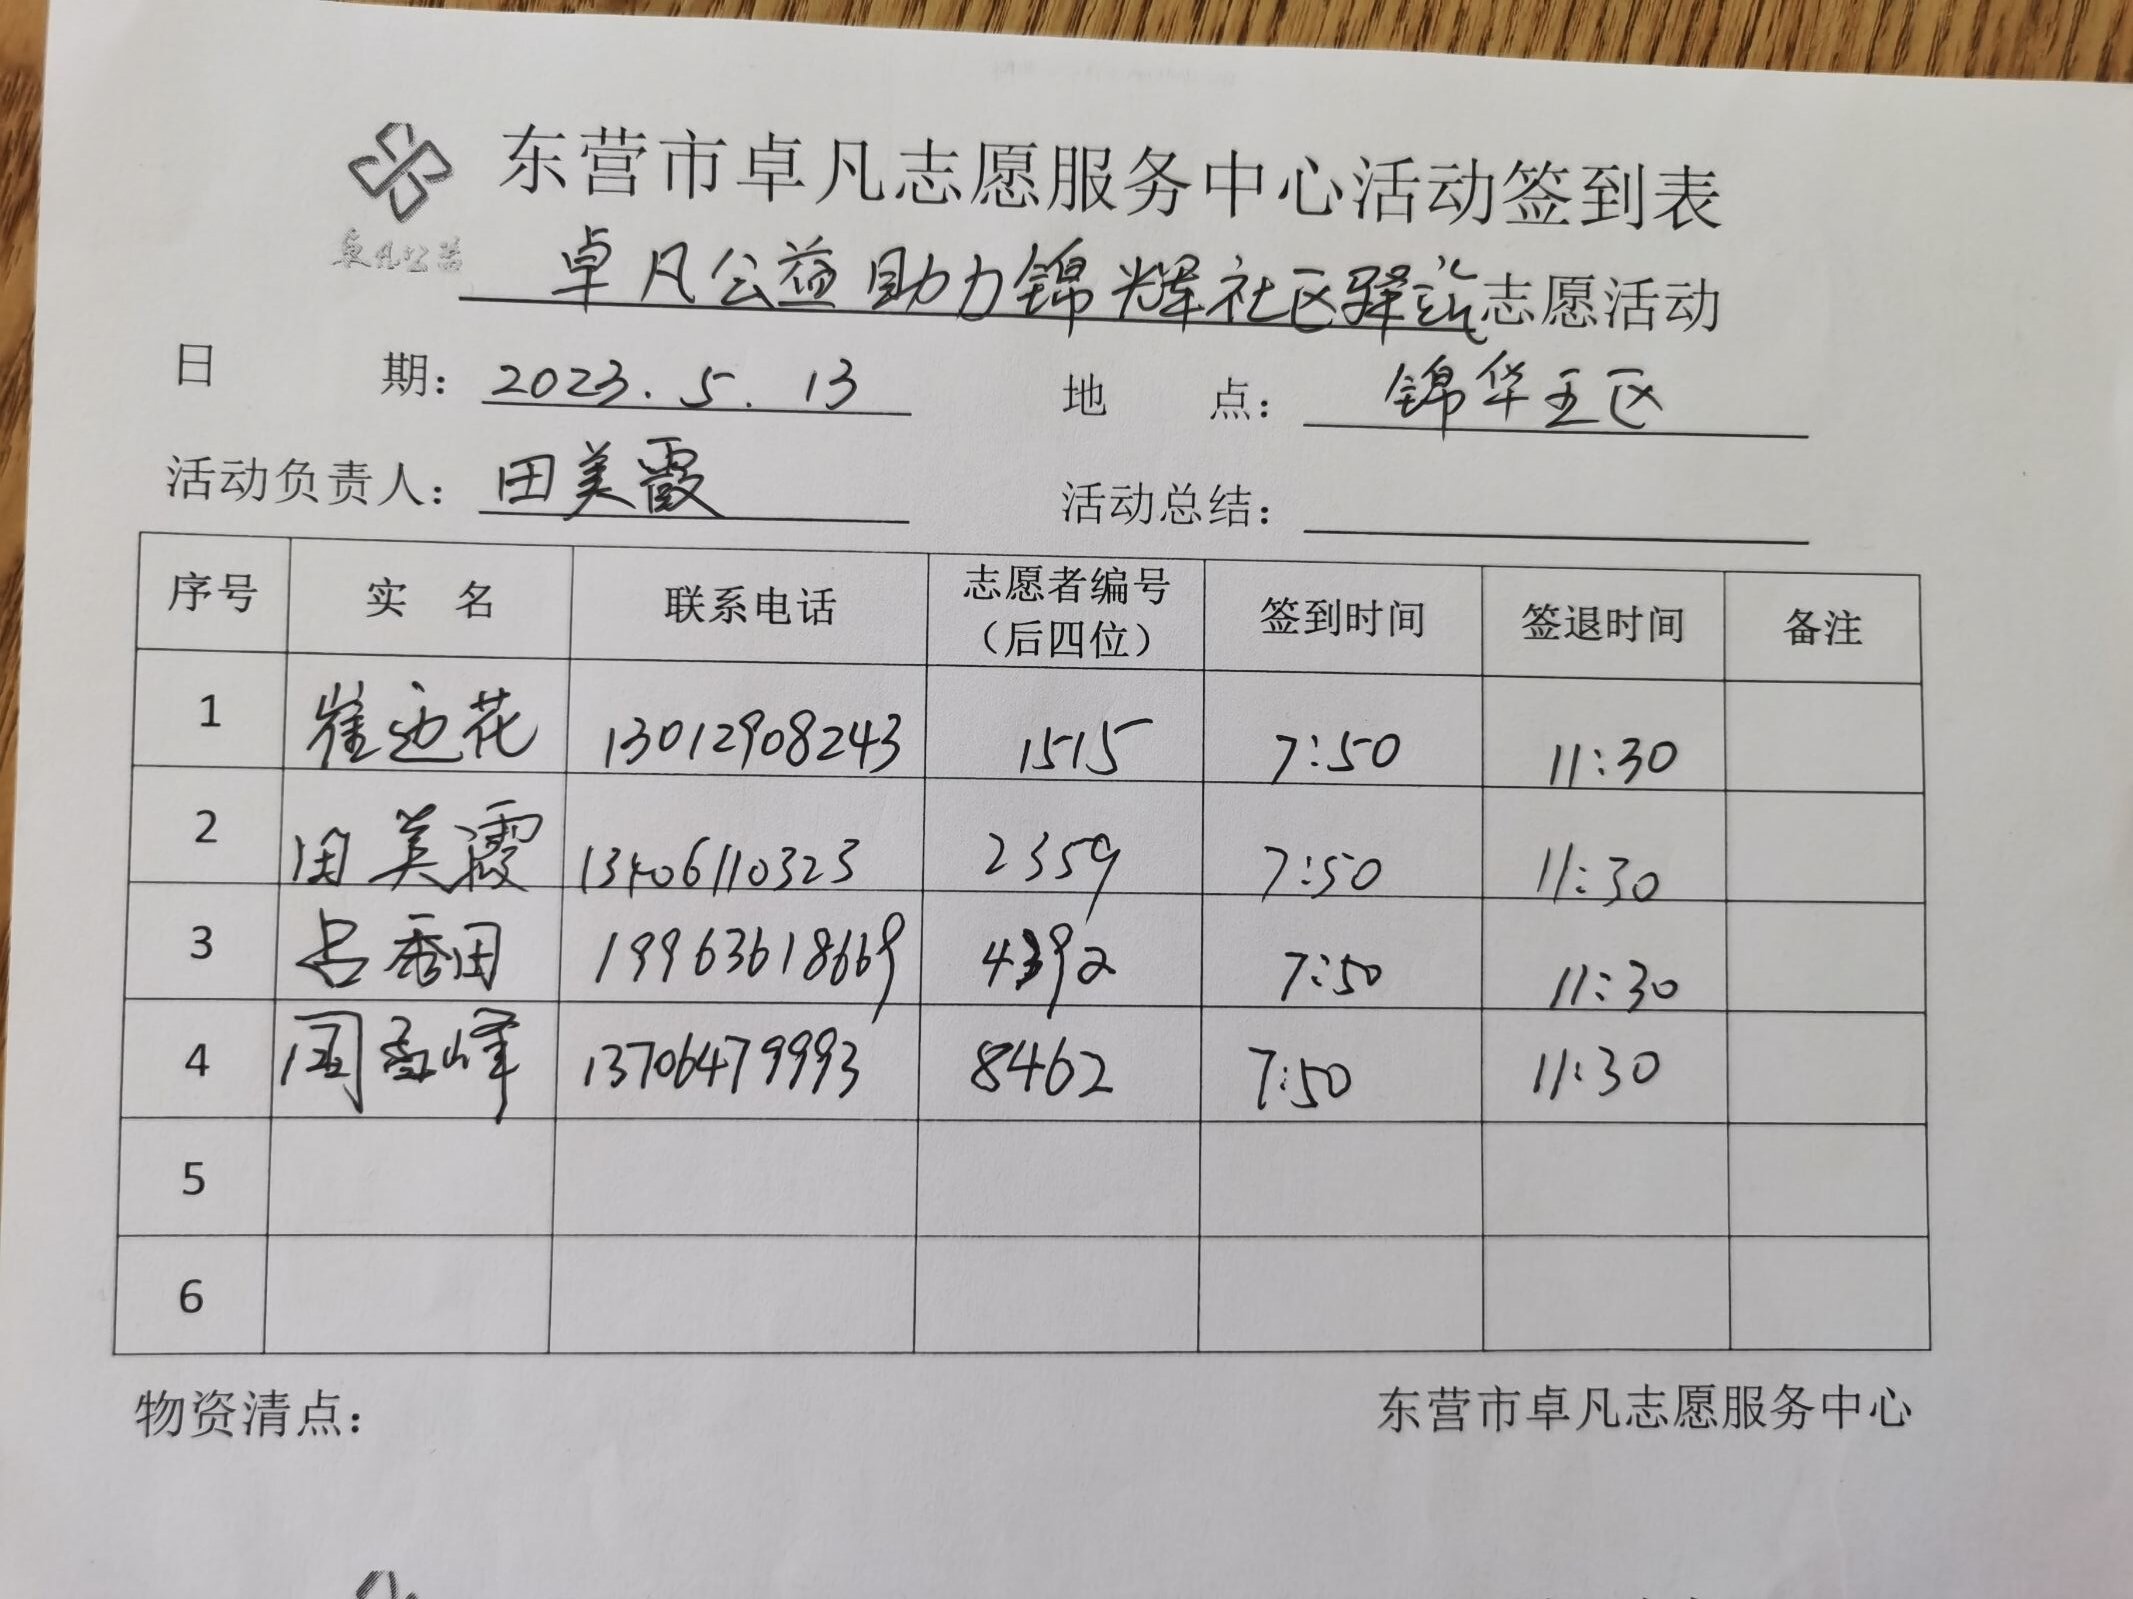 东营市卓凡志愿服务中心活动签到表
卓凡公益
卓凡公益助力锦辉社区驿站志愿活动
日 期：2023.5.13 地 点：锦华五区
活动负责人：田美霞 活动总结：
序号 实 名 联系电话 志愿者编号（后四位） 签到时间 签退时间 备注
1 崔迎花 13012908243 1515 7:50 11:30
2 田美霞 13406110323 2359 7:50 11:30
3 吕秀田 19963618669 4392 7:50 11:30
4 周高峰 13706479993 8462 7:50 11:30
5
6
物资清点： 东营市卓凡志愿服务中心